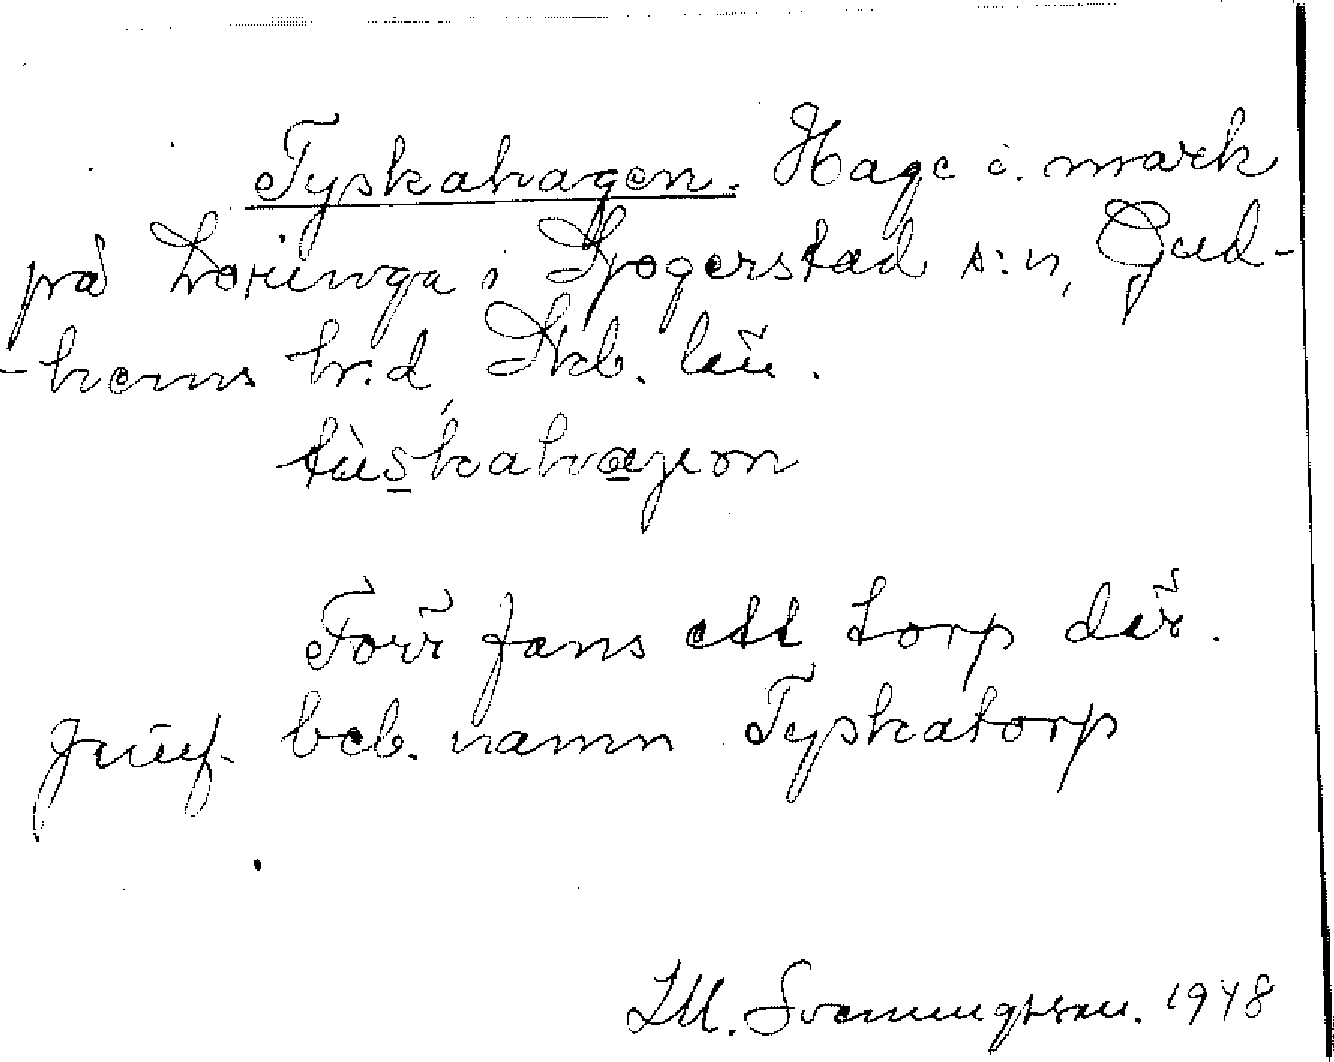 Tyskahagen. Hage i mark
på Loringa i Sjogerstad s:n, Gud-
-hems hr.d, Skb. län.
tùskahagen
Förr fans ett torp där.
Jmf. beb. namn Tyskatorp
Svenningsson. 1948